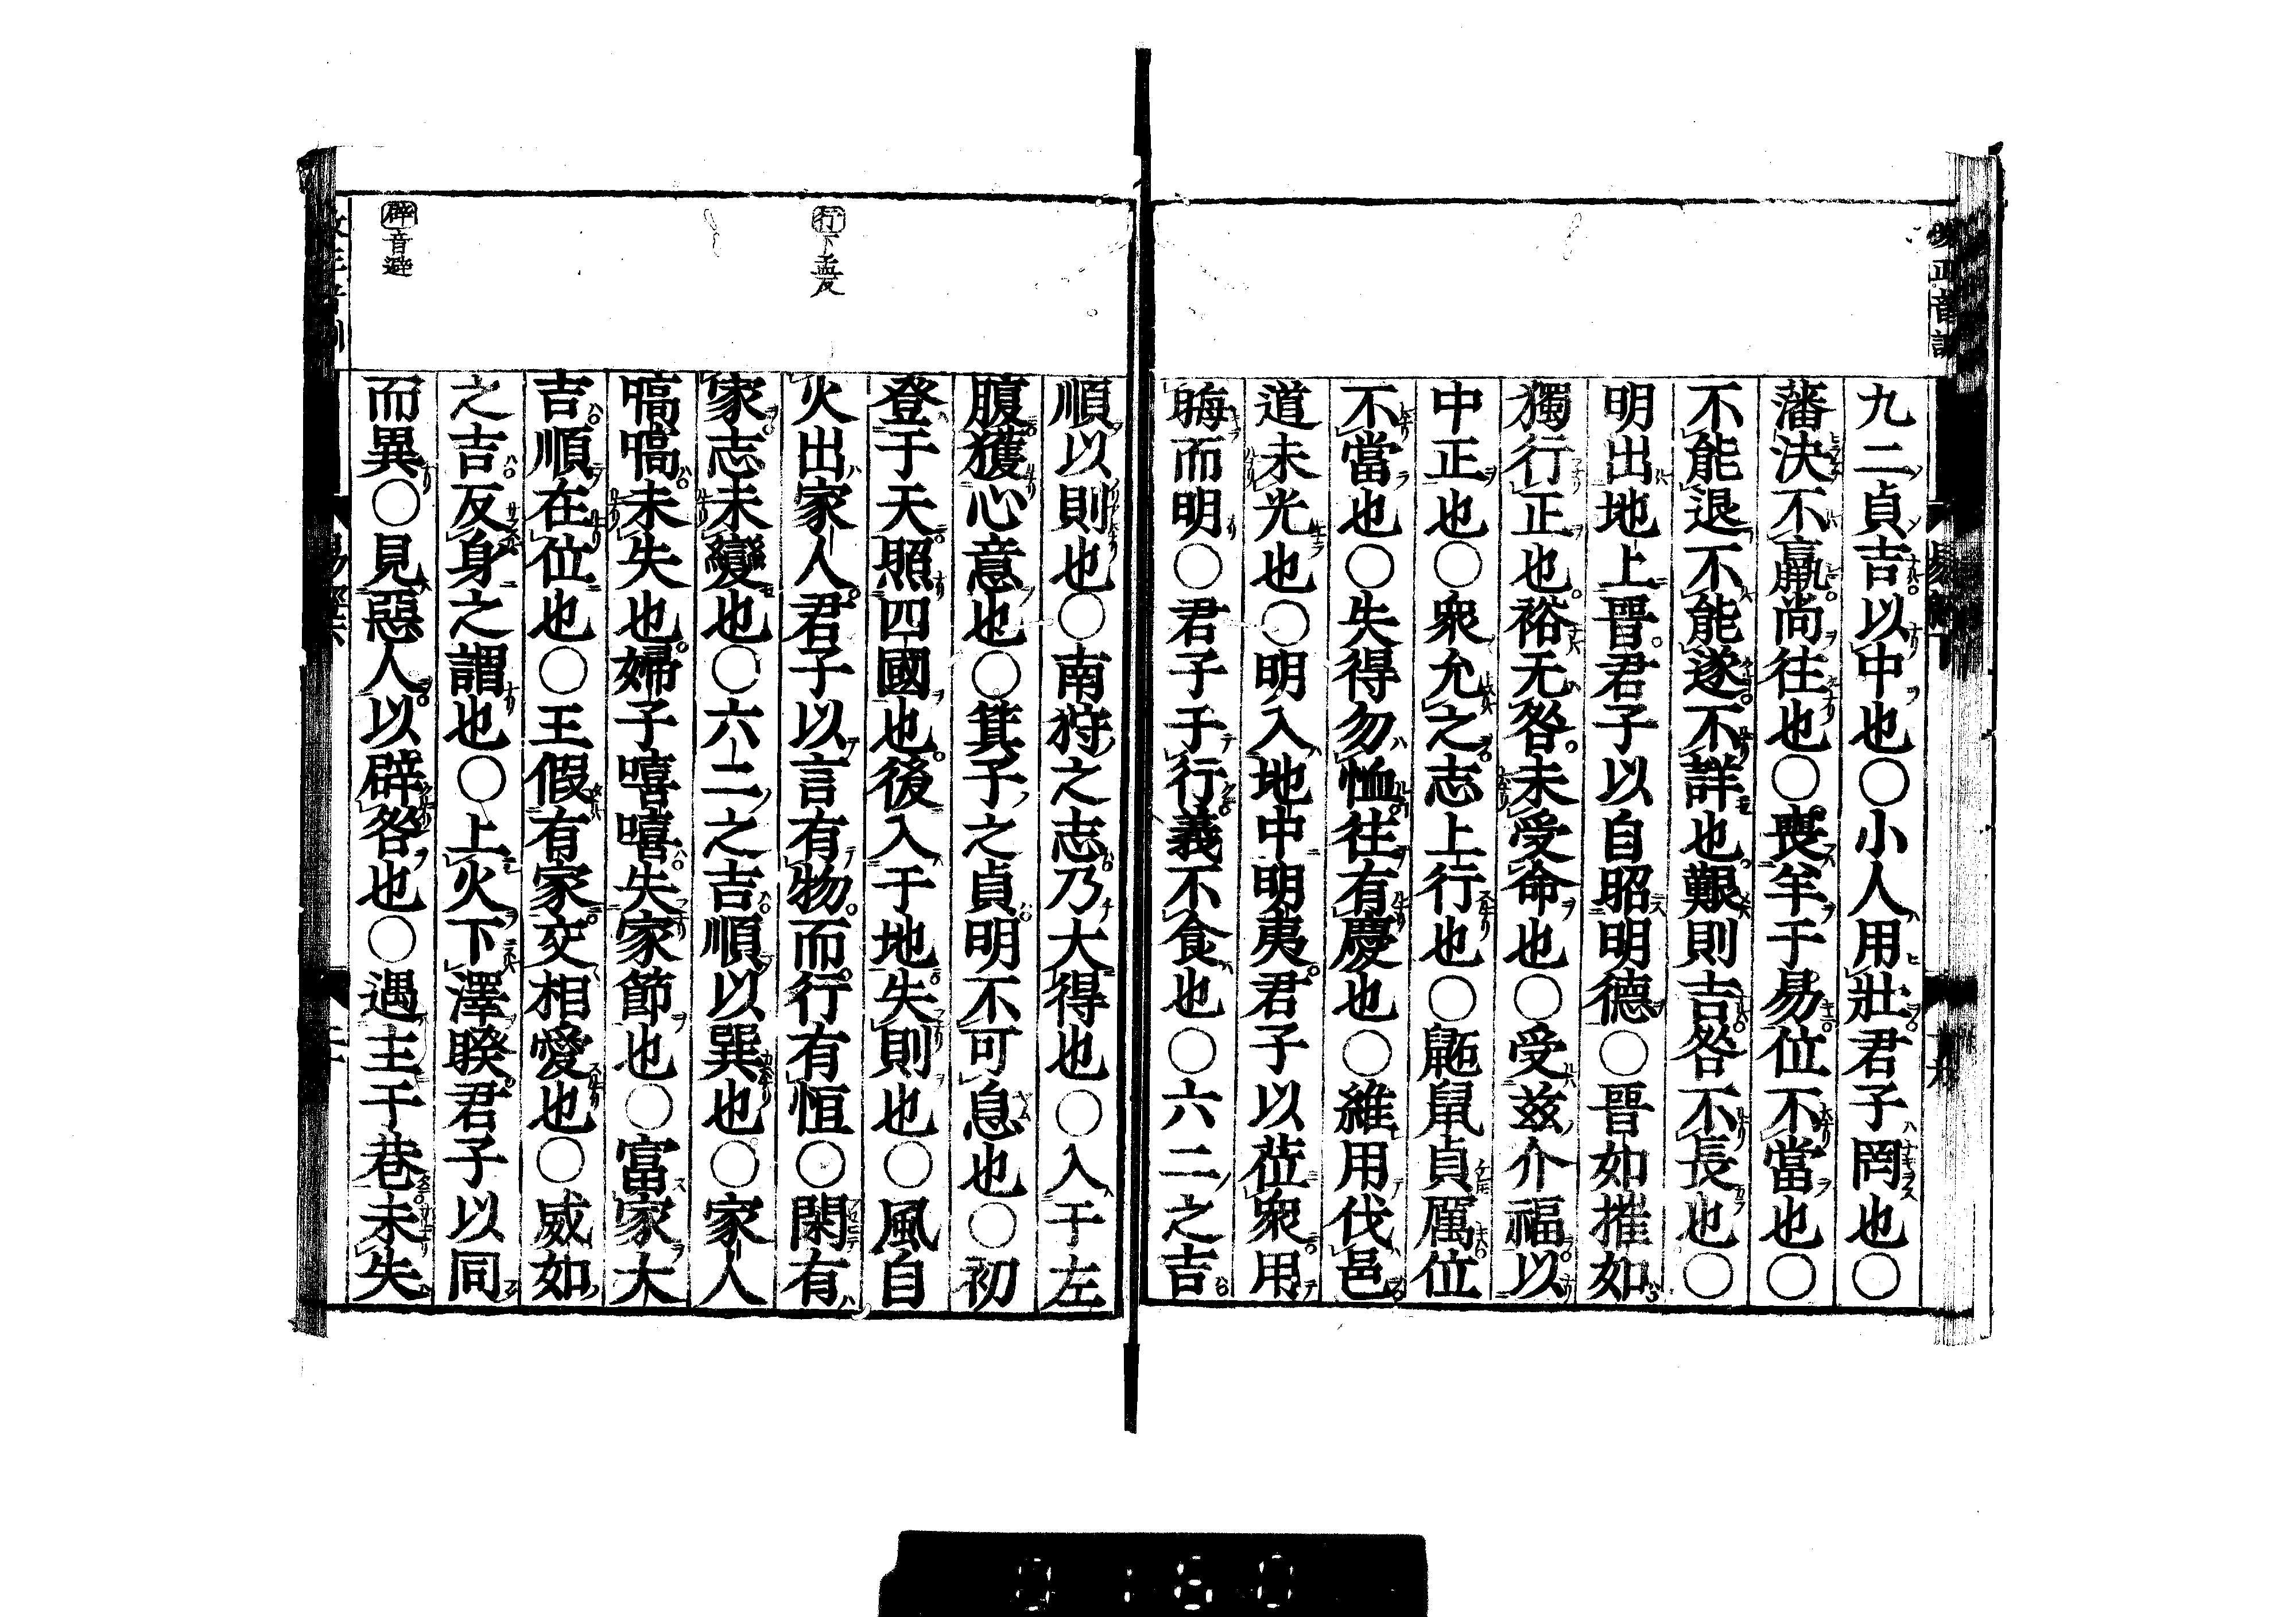 九二貞吉以中也○小人用壯君子罔也○
藩決不羸尚往也○喪羊于易位不當也○
不能退不能遂不詳也艱則吉咎不長也○
明出地上晋君子以自昭明德○晋如摧如
獨行正也裕无咎未受命也○受茲介福以
中正也○衆允之志上行也○鼫鼠貞厲位
不當也○失得勿恤往有慶也○維用伐邑
道未光也○明入地中明夷君子以莅衆用
晦而明○君子于行義不食也○六二之吉
順以則也○南狩之志乃大得也○入于左
腹獲心意也○箕子之貞明不可息也○初
登于天照四國也後入于地失則也○風自
火出家人君子以言有物而行有恒○閑有
家志未變也○六二之吉順以巽也○家人
嗃嗃未失也婦子嘻嘻失家節也○富家大
吉順在位也○王假有家交相愛也○威如
之吉反身之謂也○上火下澤睽君子以同
而異○見惡人以辟咎也○遇主于巷未失
行下孟反
辟音避